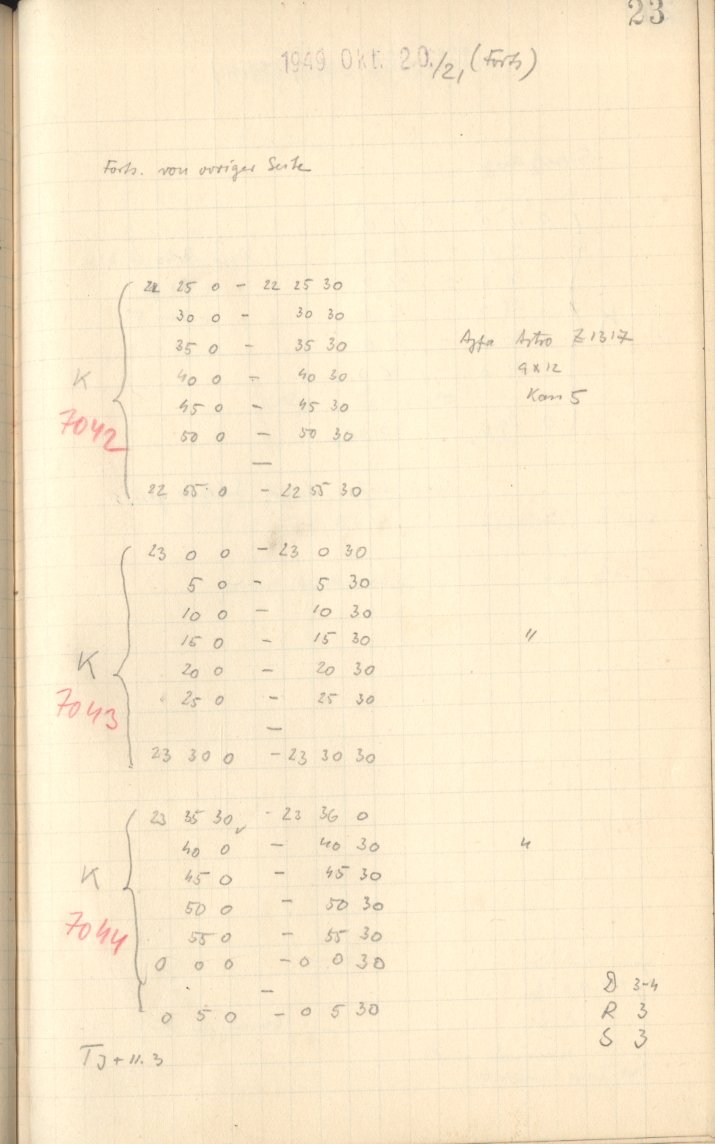 23
1949 Okt. 20./21 (Forts)
Forts. von voriger Seite
22 25 0 - 22 25 30
30 0 - 30 30
35 0 - 35 30
Agfa Astro Z1317
K
40 0 - 40 30
9x12
7042
45 0 - 45 30
Kam 5
50 0 - 50 30
—
22 55 0 - 22 55 30
23 0 0 - 23 0 30
5 0 - 5 30
10 0 - 10 30
15 0 - 15 30
"
K
20 0 - 20 30
7043
25 0 - 25 30
—
23 30 0 - 23 30 30
23 35 30 - 23 36 0
40 0 - 40 30
"
K
45 0 - 45 30
50 0 - 50 30
7044
55 0 - 55 30
0 0 0 - 0 0 30
—
D 3-4
0 5 0 - 0 5 30
R 3
S 3
TJ + 11.3